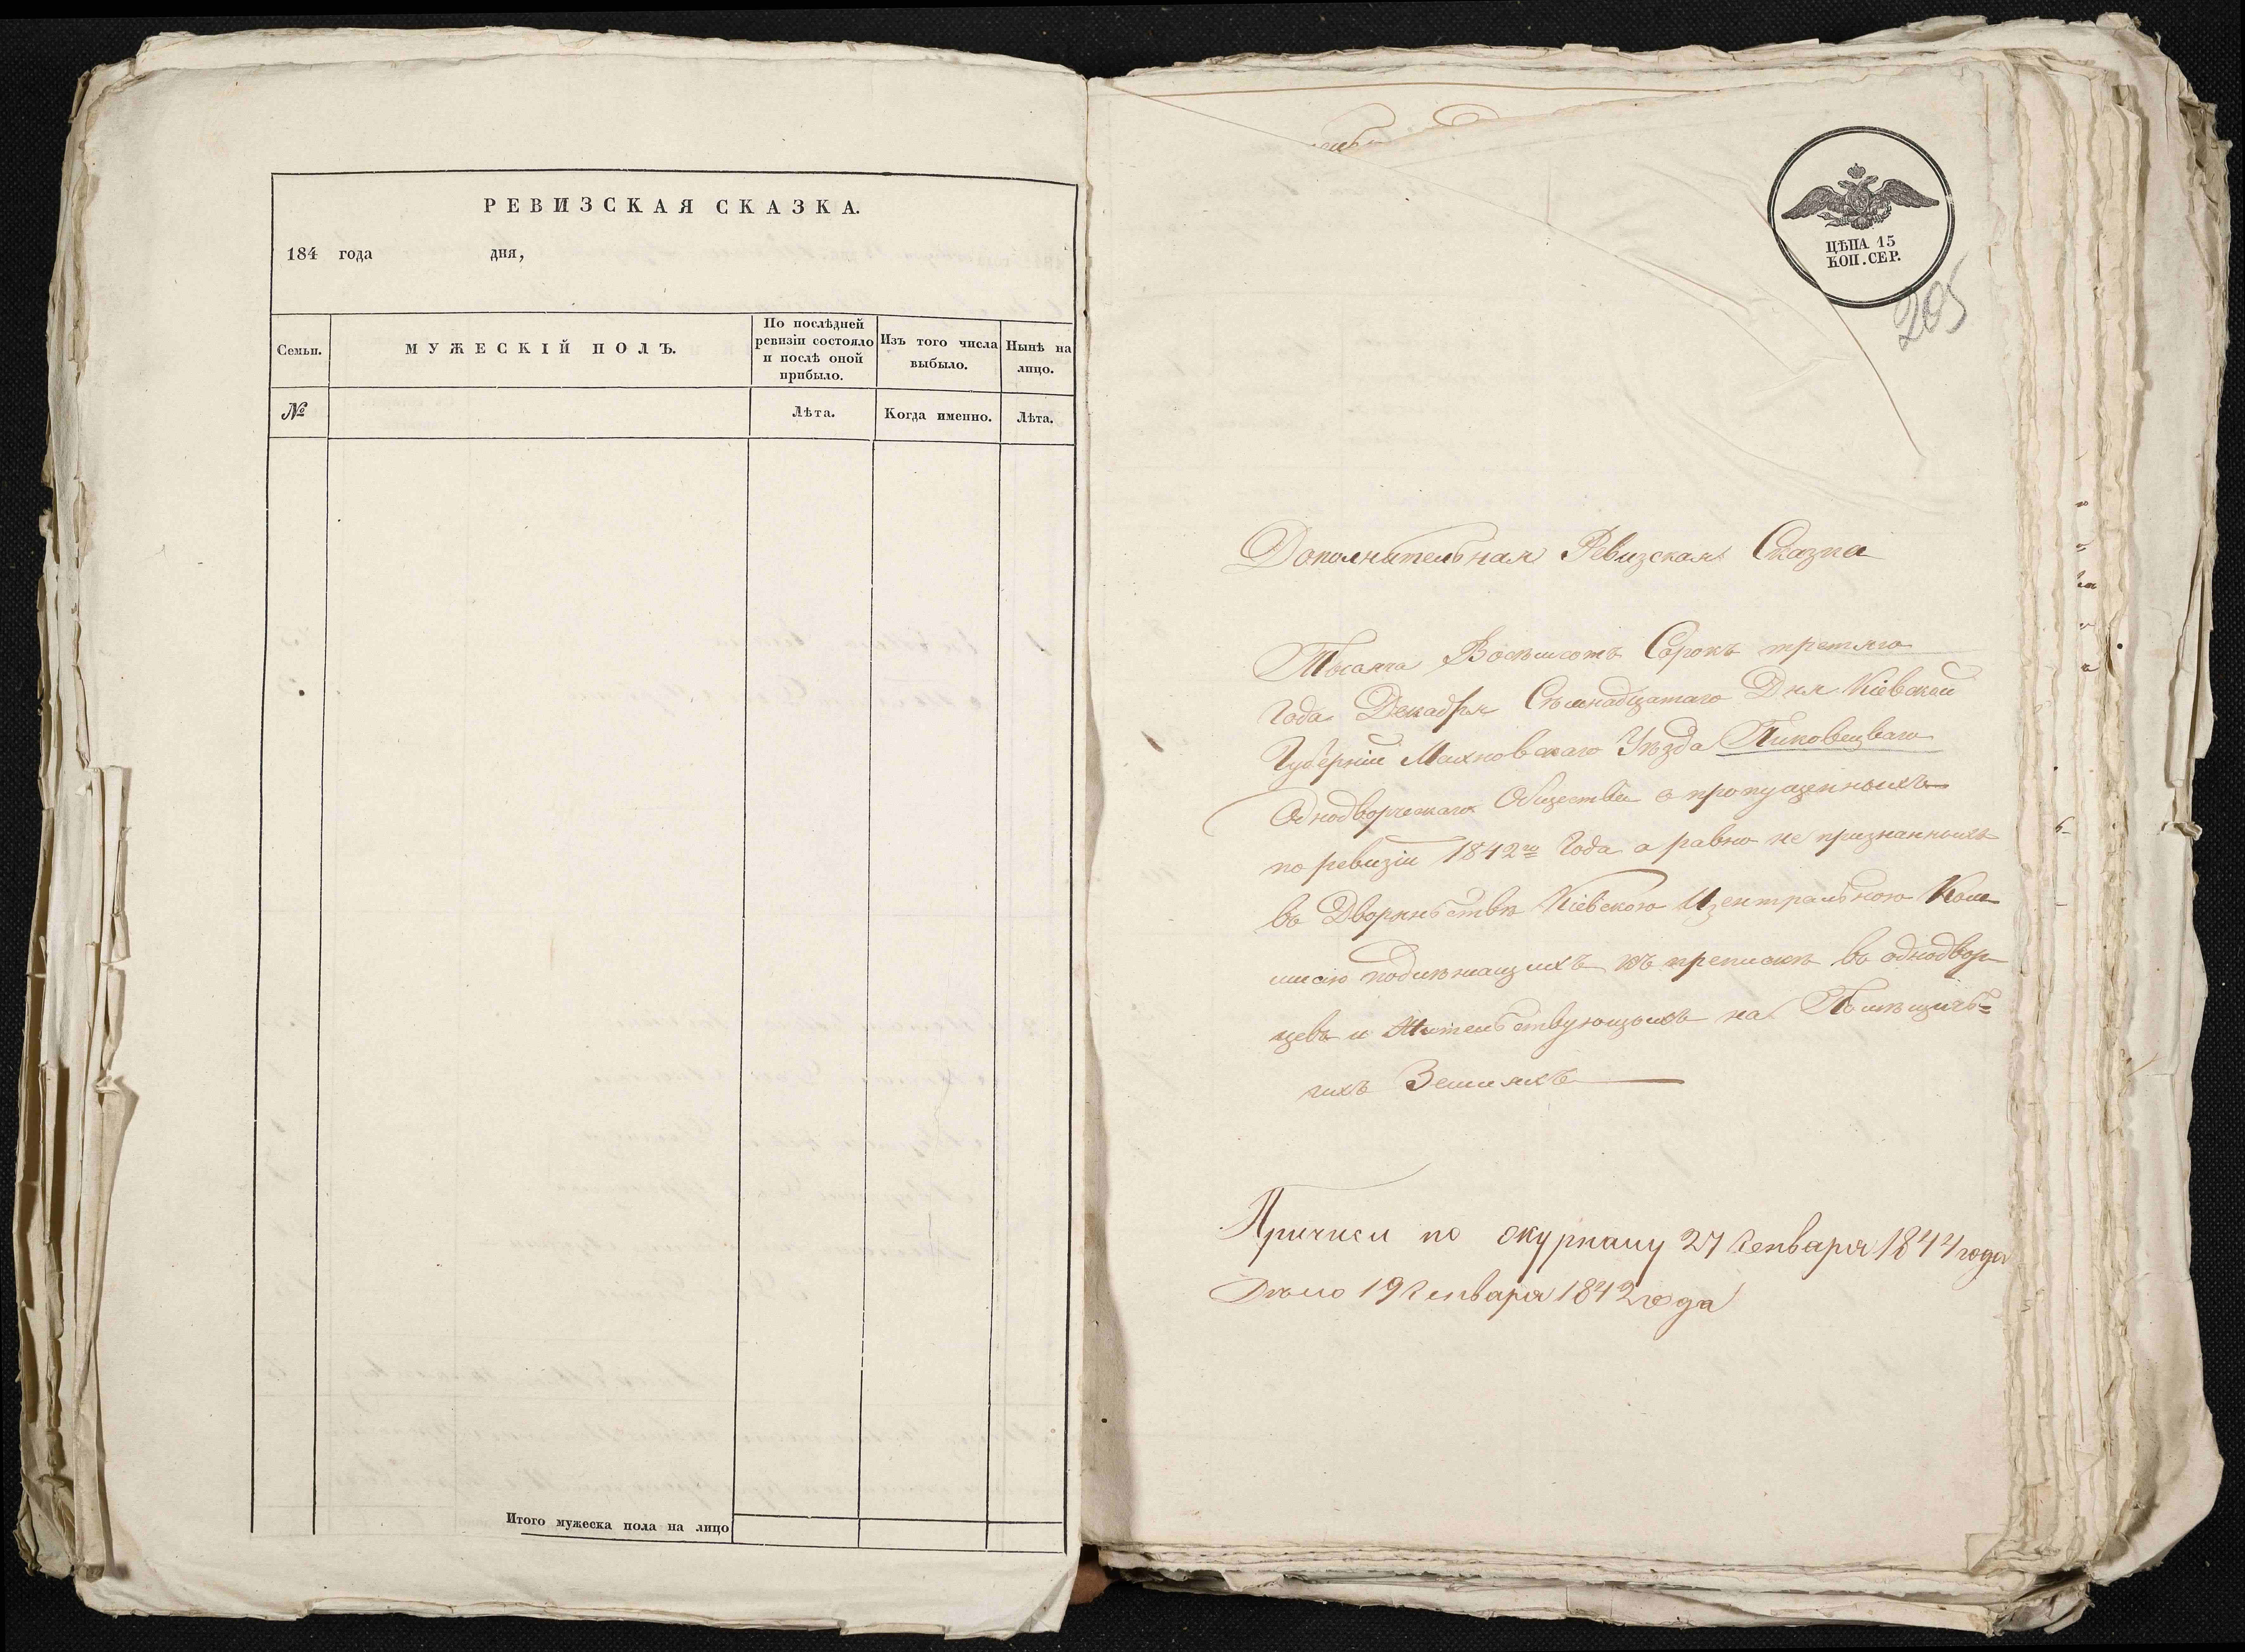 РЕВИЗСКАЯ СКАЗКА.
184 года дня,
Семьи.
МУЖЕСКІЙ ПОЛЪ.
По послѣдней
ревизіи состояло
и послѣ оной
прибыло.
Изъ того числа
выбыло.
Нынѣ на
лицо.
№
Лѣта.
Когда именно.
Лѣта.
Итого мужеска пола на лицо
ЦѢНА 15
КОП. СЕР.
205
Дополнительная Ревизская Сказка
Тысяча Восемсотъ Сорокъ третяго
Года Декабря Семнадцатаго Дня Кіевской
Губерніи Махновскаго Уѣзда Пиковецкаго
Однодворческаго Общества о пропущенныхъ
по ревизіи 1842го Года а равно не признанныхъ
въ Дворянствѣ Кіевскою Центральною Коми
мисію подлежащихъ къ препискѣ въ однодвор
цевъ и Жительствующихъ на Помѣщичь=
ихъ Земляхъ
Причисл по журналу 27 Генваря 1844 года
Дѣло 19 Генваря 1842 года